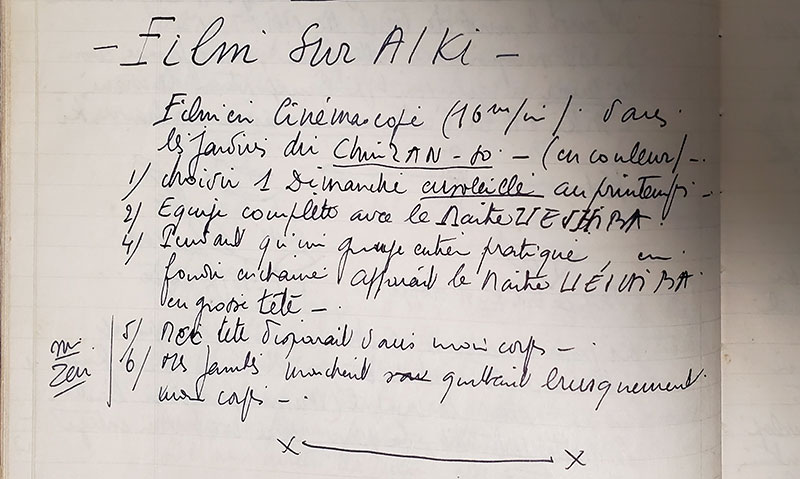 - Film sur AIKi -
Filmer en Cinémascope (16 m/m). dans
les jardins du ChinZAN-SO - (en couleur) -.
1) choisir 1 Dimanche ensoleillé au printemps -.
2) Equipe complète avec le Maitre UESHIBA.
4) Pendant qu'un groupe entier pratique, en
fondu enchainé apparait le Maitre UESHIBA
en grosse tête -.
5) Ma tete disparait dans mon corps -.
6) Mes jambes marchent quittant brusquement
mon corps -.
Zen
X X